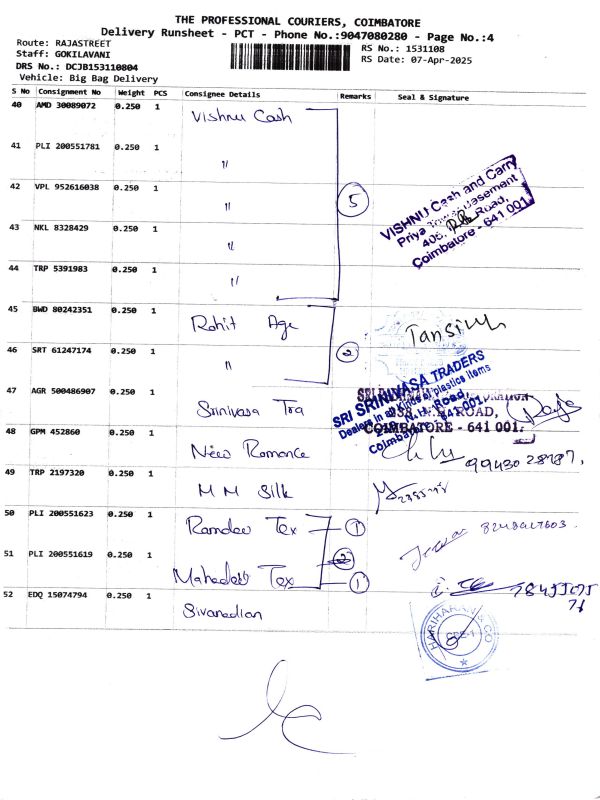 THE PROFESSIONAL COURIERS, COIMBATORE
Delivery Runsheet - PCT - Phone No.:9047080280 - Page No.:4
Route: RAJASTREET
Staff: GOKILAVANI
DRS No.: DCJB153110804
Vehicle: Big Bag Delivery
RS No.: 1531108
RS Date: 07-Apr-2025
S No Consignment No Weight PCS Consignee Details Remarks Seal & Signature
40 AMD 30089072 0.250 1 Vishnu Cash
41 PLI 200551781 0.250 1 "
42 VPL 952616038 0.250 1 " 5
VISHNU Cash and Carry
Priya Tower Basement
405, Road,
Coimbatore - 641 001.
43 NKL 8328429 0.250 1 "
44 TRP 5391983 0.250 1 "
45 BWD 80242351 0.250 1 Rohit Age
46 SRT 61247174 0.250 1 " 2
SRI SRINIVASA TRADERS
Dealers in all kinds of plastics items
N.H. Road,
Coimbatore - 641 001.
ROAD,
COIMBATORE - 641 001.
47 AGR 500486907 0.250 1 Srinivasa Tra
48 GPM 452860 0.250 1 New Romance
49 TRP 2197320 0.250 1 M M Silk
50 PLI 200551623 0.250 1 Ramdev Tex 1
51 PLI 200551619 0.250 1 Mahadev Tex 1
52 EDQ 15074794 0.250 1 Sivanadian
HARIHARAN & CO